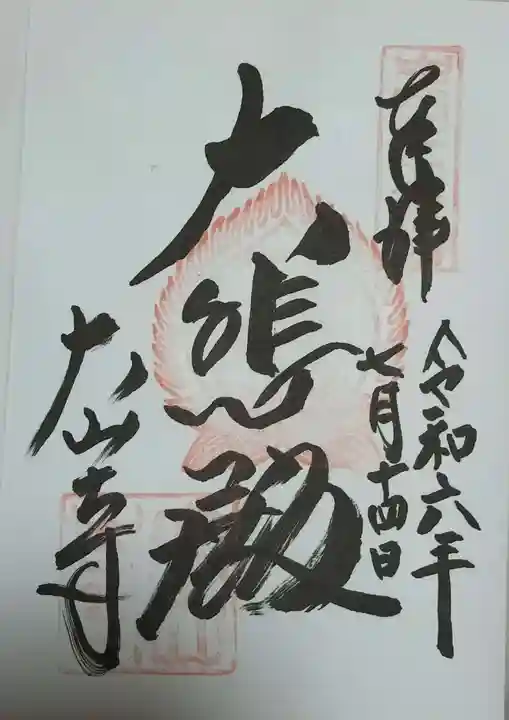 奉拝
令和六年
七月十四日
大悲殿
大山寺